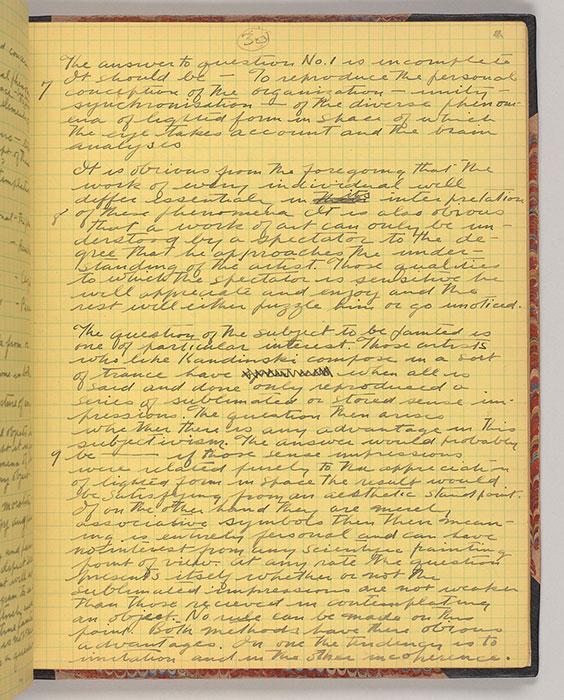 30
The answer to question No. 1 is incomplete
It should be — To reproduce the personal
7 conception of the organization — unity —
synchronisation — of the diverse phenom-
ena of lighted form in space of which
the eye takes account and the brain
analysis
It is obvious from the foregoing that the
work of every individual will
differ essentialy in interpretation
8 of these phenomena It also obvous
that a work of art can only be un-
derstood by a spectator to the de-
gree that he approaches the under-
standing of the artist. Those qualities
to which the spectator is sensitive he
will appreciate and enjoy and the
rest will either puzzle him or go unoticed.
The question of the subject to be painted is
one of particular interest. Those artists
who like Kandinski compose in a sort
of trance have when all is
said and done only reproduced a
series of sublimated or stored sense im-
pressions. The question then arises
whether there is any advantage in this
subjectivism. The answer would probably
9 be — if those sense impressions
were related purely to the appreciation
of lighted form in space the result would
be satisfying from an aesthetic standpoint.
If on the other hand they are merely
associative symbols then their mean-
ing is entirely personal and can have
no interest from any scientific painting
point of view. at any rate the question
presents itself whether or not the
sublimated impressions are not weaker
than those recieved in contemplating
an object. No rule can be made on this
point. Both methods have their obvious
advantages. In one the tendency is to
imitation and in the other incoherence.